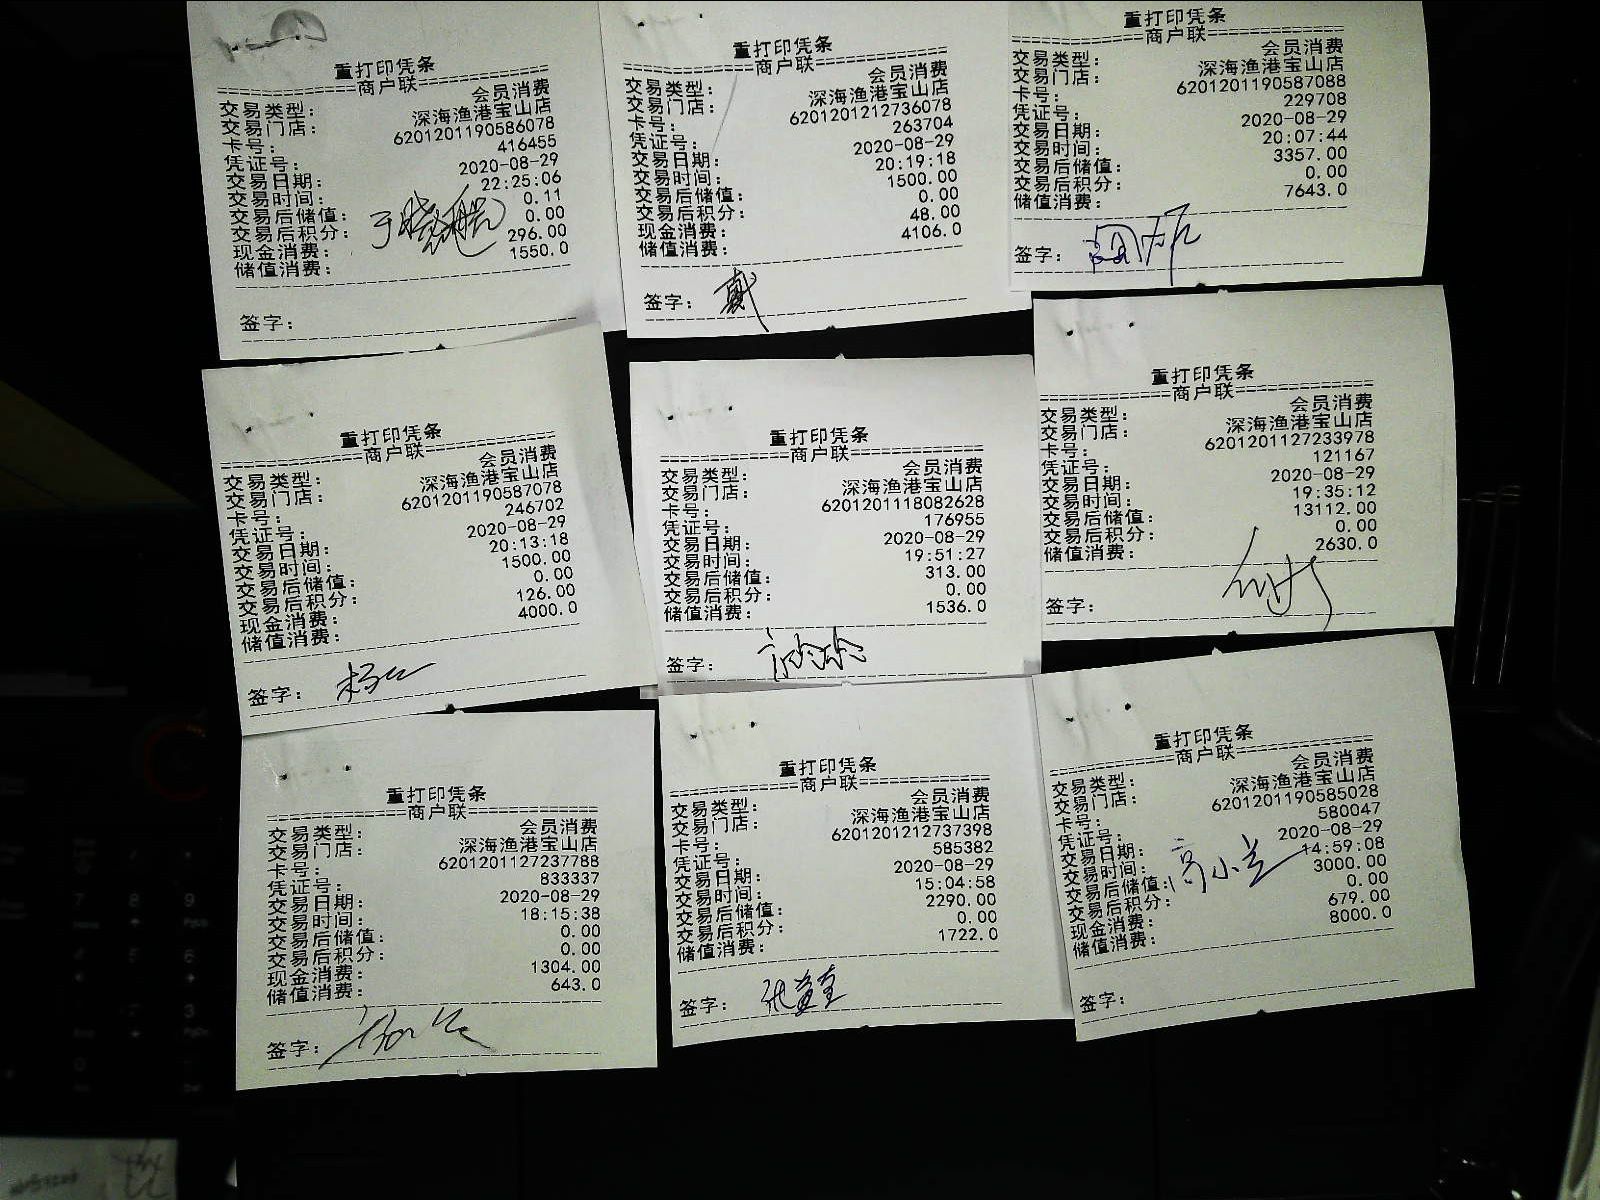 重打印凭条
================商户联================
交易类型: 会员消费
交易门店: 深海渔港宝山店
卡号: 6201201190586078
凭证号: 416455
交易日期: 2020-08-29
交易时间: 22:25:06
交易后储值: 0.11
交易后积分: 0.00
现金消费: 296.00
储值消费: 1550.0
签字:
重打印凭条
================商户联================
交易类型: 会员消费
交易门店: 深海渔港宝山店
卡号: 6201201212736078
凭证号: 263704
交易日期: 2020-08-29
交易时间: 20:19:18
交易后储值: 1500.00
交易后积分: 0.00
现金消费: 48.00
储值消费: 4106.0
签字: 戴
重打印凭条
================商户联================
交易类型: 会员消费
交易门店: 深海渔港宝山店
卡号: 6201201190587088
凭证号: 229708
交易日期: 2020-08-29
交易时间: 20:07:44
交易后储值: 3357.00
交易后积分: 0.00
储值消费: 7643.0
签字:
重打印凭条
================商户联================
交易类型: 会员消费
交易门店: 深海渔港宝山店
卡号: 6201201190587078
凭证号: 246702
交易日期: 2020-08-29
交易时间: 20:13:18
交易后储值: 1500.00
交易后积分: 0.00
现金消费: 126.00
储值消费: 4000.0
签字:
重打印凭条
================商户联================
交易类型: 会员消费
交易门店: 深海渔港宝山店
卡号: 6201201118082628
凭证号: 176955
交易日期: 2020-08-29
交易时间: 19:51:27
交易后储值: 313.00
交易后积分: 0.00
储值消费: 1536.0
签字:
重打印凭条
================商户联================
交易类型: 会员消费
交易门店: 深海渔港宝山店
卡号: 6201201127233978
凭证号: 121167
交易日期: 2020-08-29
交易时间: 19:35:12
交易后储值: 13112.00
交易后积分: 0.00
储值消费: 2630.0
签字:
重打印凭条
================商户联================
交易类型: 会员消费
交易门店: 深海渔港宝山店
卡号: 6201201127237788
凭证号: 833337
交易日期: 2020-08-29
交易时间: 18:15:38
交易后储值: 0.00
交易后积分: 0.00
现金消费: 1304.00
储值消费: 643.0
签字:
重打印凭条
================商户联================
交易类型: 会员消费
交易门店: 深海渔港宝山店
卡号: 6201201212737398
凭证号: 585382
交易日期: 2020-08-29
交易时间: 15:04:58
交易后储值: 2290.00
交易后积分: 0.00
储值消费: 1722.0
签字:
重打印凭条
================商户联================
交易类型: 会员消费
交易门店: 深海渔港宝山店
卡号: 6201201190585028
凭证号: 580047
交易日期: 2020-08-29
交易时间: 14:59:08
交易后储值: 3000.00
交易后积分: 0.00
现金消费: 679.00
储值消费: 8000.0
签字: